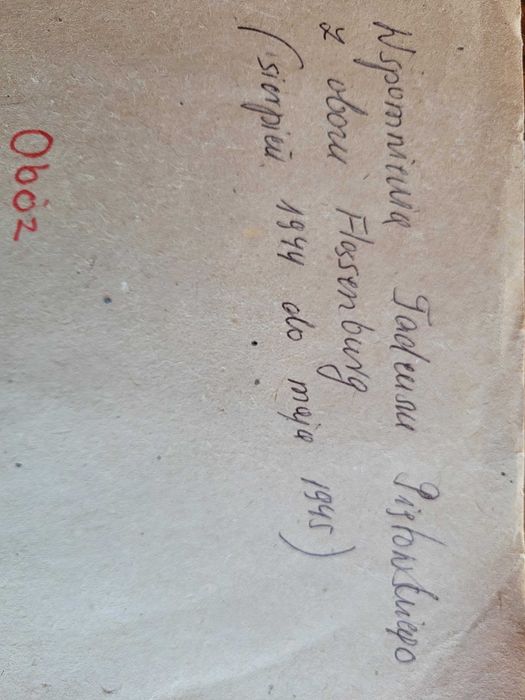 Wspomnienia Tadeusza Pistowskiego
z obozu Flossenburg
(sierpień 1944 do maja 1945)
Obóz